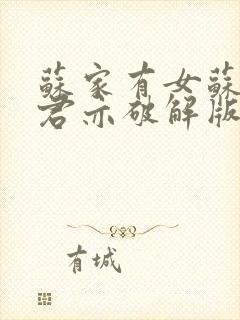 蘇家有女蘇
君亦破解版
有城